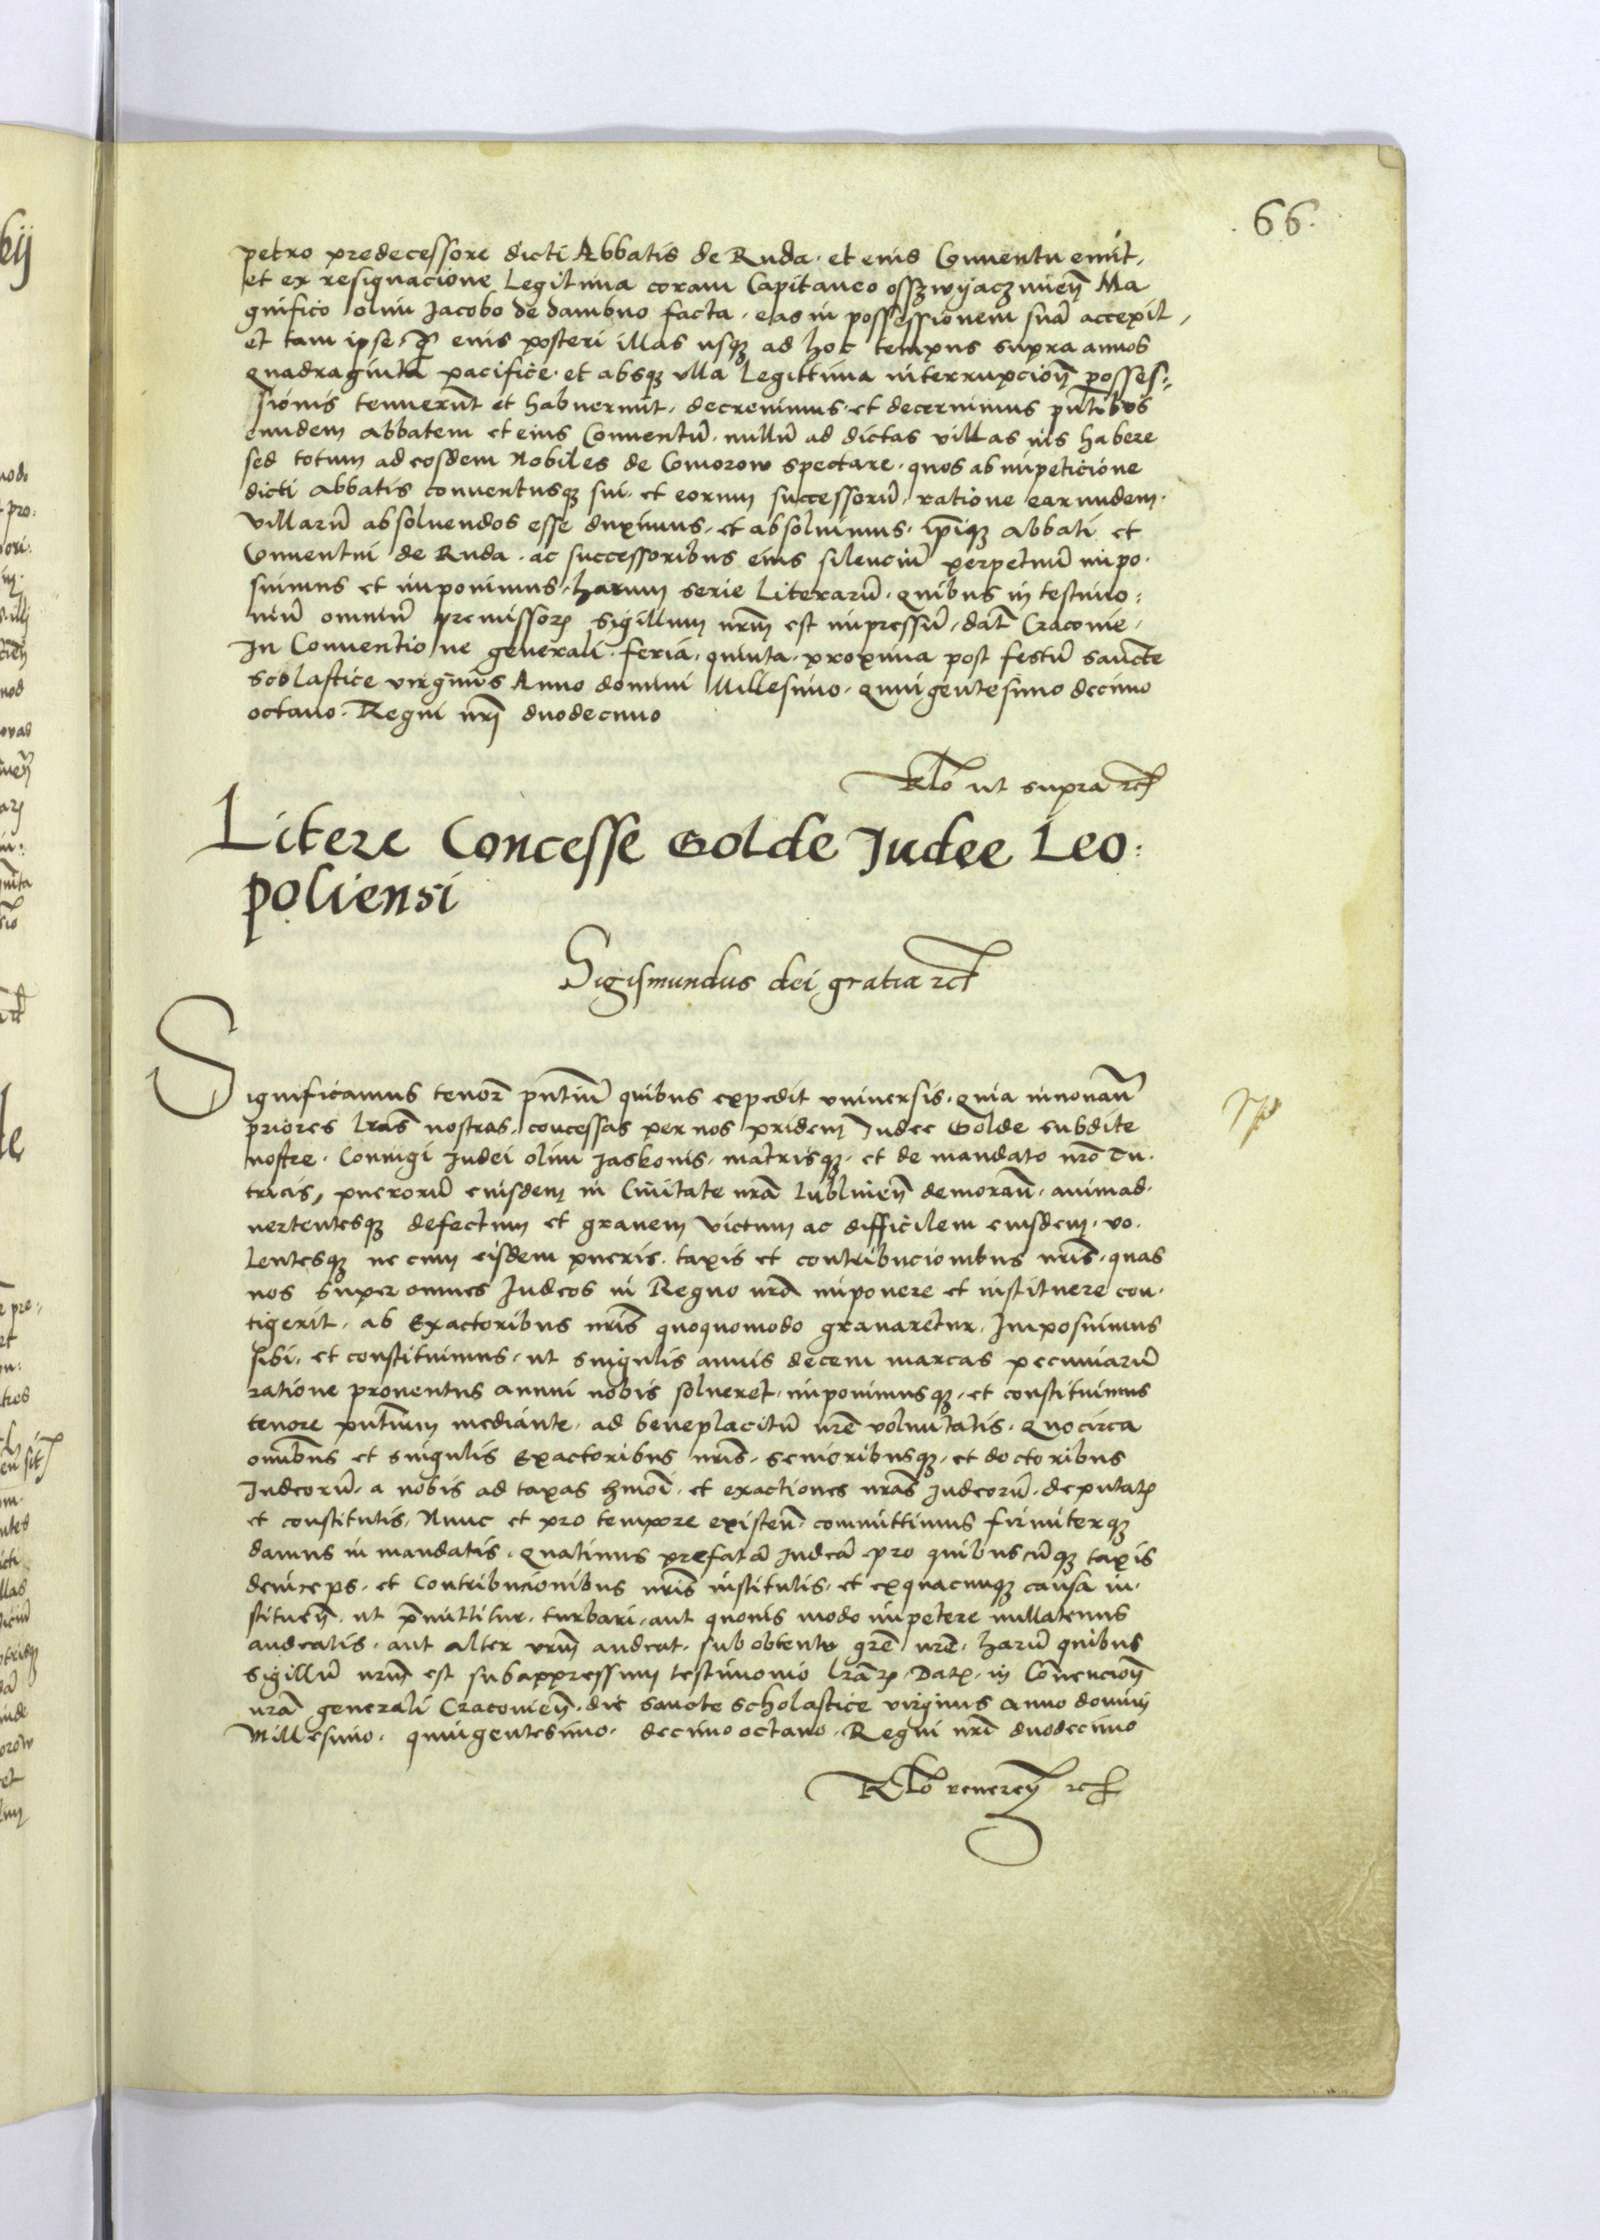 66.
petro predecessore dicti Abbatis de Ruda. et eius Conventu emit,
et ex resignacione Legitima coram Capitaneo osszwyaczimeñ Ma
gnifico olim Jacobo de dambno facta. eas in possessionem suã accepit,
et tam ipse, eius posteri illas usqȝ ad hoc tempus supra annos
quadraginta pacifice. et absqȝ ulla Legittima interrupcioñ posses:
sionis tenuerũt et habuerunt. decrevimus. et decernimus pñtibus
eundem abbatem et eius Conventũ. nullũ ad dictas villas ius habere
sed totum ad eosdem Nobiles de Comorow spectare. quos ab impeticione
dicti Abbatis conventusqȝ sui. et eorum successorũ. ratione earundem.
villarũ absolvendos esse duximus. et absolvimus. ip̃iqȝ abbati et
Conventui de Ruda. ac successoribus eius silenciũ perpetuũ impo.
suimus et imponimus. harum serie Literarũ. quibus in testimo:
niũ omniũ premissorꝝ Sigillum nr̃m est impressũ. dat̃ Cracovie.
In Conventione generali. feria. quinta. proxima post festũ sancte
Scolastice virginis Anno domini Millesimo. quingentesimo decimo
octavo. Regni nr̃i duodecimo
Rl̃o ut supra ꝛcꝭ
Litere Concesse Golde Judee Leo:
poliensi
Sigismundus dei gratia ꝛcꝭ
Significamus tenor̃ pñtiũ quibus expedit universis. quia innovañ
priores lr̃as nostras. concessas per nos pridem Judee Golde subdite
nostre. Coniugi Judei olim Jaskonis. matrisqȝ. et de mandato nr̃o Tu.
tricis, puerorũ eiusdem in Civitate nr̃a Lublineñ demorañ. animad.
vertentesqȝ defectum et gravem victum ac difficilem eiusdem. vo.
lentesqȝ ne cum eisdem pueris. taxis et contribucionibus nr̃is. quas
nos super omnes Judeos in Regno nr̃o imponere et instituere con.
tigerit. ab Exactoribus nr̃is quoquomodo gravaretur. Imposuimus
sibi. et constituimus. ut singulis annis decem marcas pecuniarũ
ratione proventus annui nobis solveret. imponimusqȝ. et constituimus
tenore pñtium mediante. ad beneplacitũ nr̃e voluntatis. Quocirca
omñibus et singulis Exactoribus nr̃is. Senioribusqȝ. et doctoribus
Judeorũ. a nobis ad taxas hmõi. et exactiones nr̃as Judeorũ. deputatꝭ
et constitutis. Nunc et pro tempore existeñ. committimus firmiterqȝ
damus in mandatis. Quatinus prefatã Judeã pro quibuscũqȝ taxis
deinceps. et Contribucionibus nr̃is institutis. et exquacunqȝ causa in.
stitueñ. ut p̃mittitur. turbari. aut quovis modo impetere nullatenus
audeatis. aut alter vr̃m audeat. sub obtentu gr̃e nr̃e. harũ quibus
Sigillũ nr̃m est subappressum testimonio lr̃arꝝ. Datꝭ. in Cõvencioñ
nr̃a generali Cracovieñ. die Sancte Scholastice virginis Anno domini
Millesimo. quingentesimo. decimo octavo. Regni nr̃i duodecimo
Rl̃o reverenꝭ ꝛcꝭ